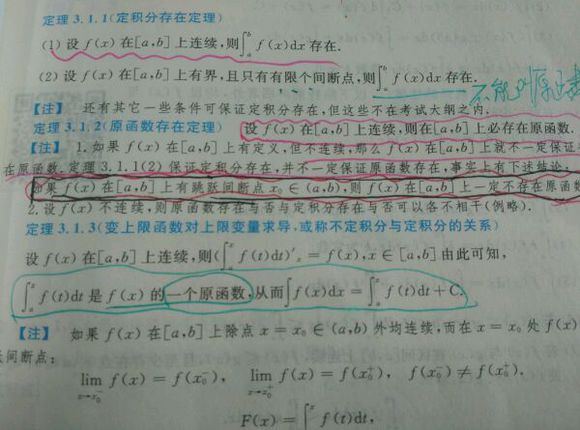 定理 3.1.1(定积分存在定理)
(1) 设 f(x) 在[a,b]上连续,则∫ₐᵇ f(x)dx 存在.
(2) 设 f(x) 在[a,b]上有界,且只有有限个间断点,则∫ₐᵇ f(x)dx 存在.
【注】 还有其它一些条件可保证定积分存在,但这些不在考试大纲之内.
定理 3.1.2(原函数存在定理) 设 f(x) 在[a,b]上连续,则在[a,b]上必存在原函数.
【注】 1. 如果 f(x) 在[a,b]上有定义,但不连续,那么 f(x) 在[a,b]上就不一定保证
在原函数.定理 3.1.1(2) 保证定积分存在,并不一定保证原函数存在,事实上有下述结论
如果 f(x) 在[a,b]上有跳跃间断点 x₀ ∈ (a,b),则 f(x) 在[a,b]上一定不存在原函数
2. 设 f(x) 不连续,则原函数存在与否与定积分存在与否可以各不相干(例略).
定理 3.1.3(变上限函数对上限变量求导,或称不定积分与定积分的关系)
设 f(x) 在[a,b]上连续,则(∫ₐˣ f(t)dt)′ₓ = f(x), x ∈ [a,b]由此可知,
∫ₐˣ f(t)dt 是 f(x) 的一个原函数,从而∫f(x)dx = ∫ₐˣ f(t)dt + C.
【注】 如果 f(x) 在[a,b]上除点 x = x₀ ∈ (a,b) 外均连续,而在 x = x₀ 处 f(x)
间断点:
lim x→x₀⁻ f(x) = f(x₀⁻), lim x→x₀⁺ f(x) = f(x₀⁺), f(x₀⁻) ≠ f(x₀⁺).
F(x) = ∫ˣ f(t)dt,